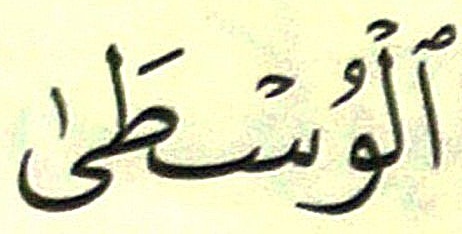 ٱلْوُسْطَىٰ